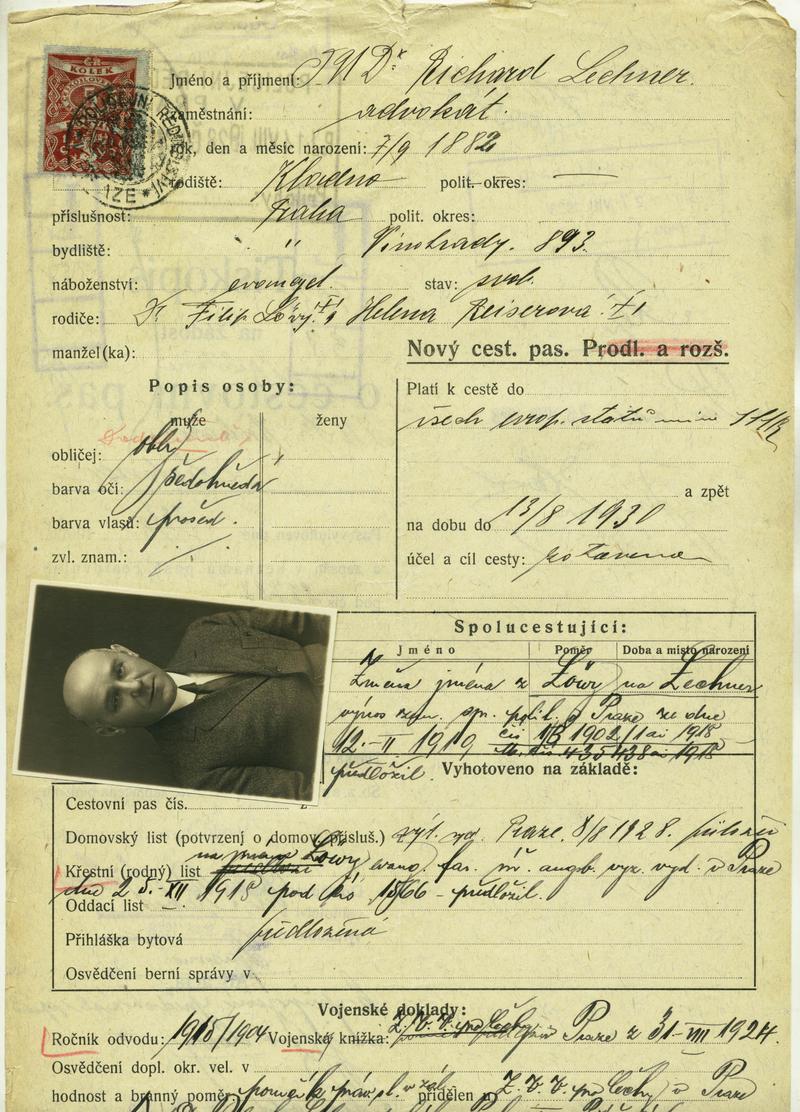 KOLEK
Jméno a příjmení: JUDr Richard Lechner.
zaměstnání: advokát.
rok, den a měsíc narození: 7/9 1882
rodiště: Kladno polit. okres: —
příslušnost: Praha polit. okres:
bydliště: " Vinohrady. 893.
náboženství: evangel. stav: svob.
rodiče: Dr Filip Löwy Helena Reiserová
manžel(ka):
Nový cest. pas. Prodl. a rozš.
Popis osoby:
muže ženy
obličej: obl.
barva očí: šedohnědá
barva vlasů: prošed.
zvl. znam.:
Platí k cestě do
všech evrop. států mimo SSSR
a zpět
na dobu do 13/8 1930
účel a cíl cesty: zotavená
Spolucestující:
Jméno Poměr Doba a místo narození
Změna jména z Löwy na Lechner
výnos zem. spr. polit. v Praze ze dne
12.-II 1919 čís 1/B 1902/1 ai 1918
435438 ai 1918
předložil. Vyhotoveno na základě:
Cestovní pas čís.
Domovský list (potvrzení o domov. přísluš.) vyd. Praze. 8/8 1928.
na jméno Löwy
Křestní (rodný) list evang. far. úř. augsb. vyz. vyd. v Praze
dne 23.-XII 1918 pod čís 1566 - předložil.
Oddací list —
Přihláška bytová předložena
Osvědčení berní správy v
Vojenské doklady:
Ročník odvodu: 1915/1904 Vojenská knížka: Z.V.V. pro Čechy v Praze z 31-VIII 1924.
Osvědčení dopl. okr. vel. v
hodnost a branný poměr: pomoc. k práv. sl. v zál. přidělen u Z.V.V. pro Čechy v Praze